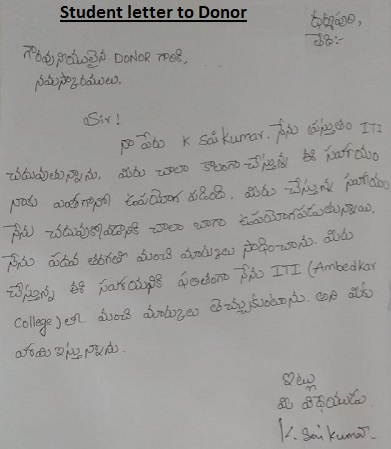 Student letter to Donor
ధర్మపురి,
తేది:-
గౌరవనీయులైన DONOR గారికి,
నమస్కారములు,
Sir!
నా పేరు K Saikumar. నేను ప్రస్తుతం ITI
చదువుతున్నాను. మీరు చాలా కాలంగా చేస్తున్న ఈ సహాయం
నాకు ఎంతగానో ఉపయోగ పడింది. మీరు చేస్తున్న సహాయం
నేను చదువుకోవడానికి చాలా బాగా ఉపయోగపడుతున్నాయి.
నేను పదవ తరగతిలో మంచి మార్కులు సాధించాను. మీరు
చేస్తున్న ఈ సహాయానికి ఫలితంగా నేను ITI (Ambedkar
College) లో మంచి మార్కులు తెచ్చుకుంటాను. అని మీకు
హామి ఇస్తున్నాను.
ఇట్లు
మీ విధేయుడు.
K. Saikumar.